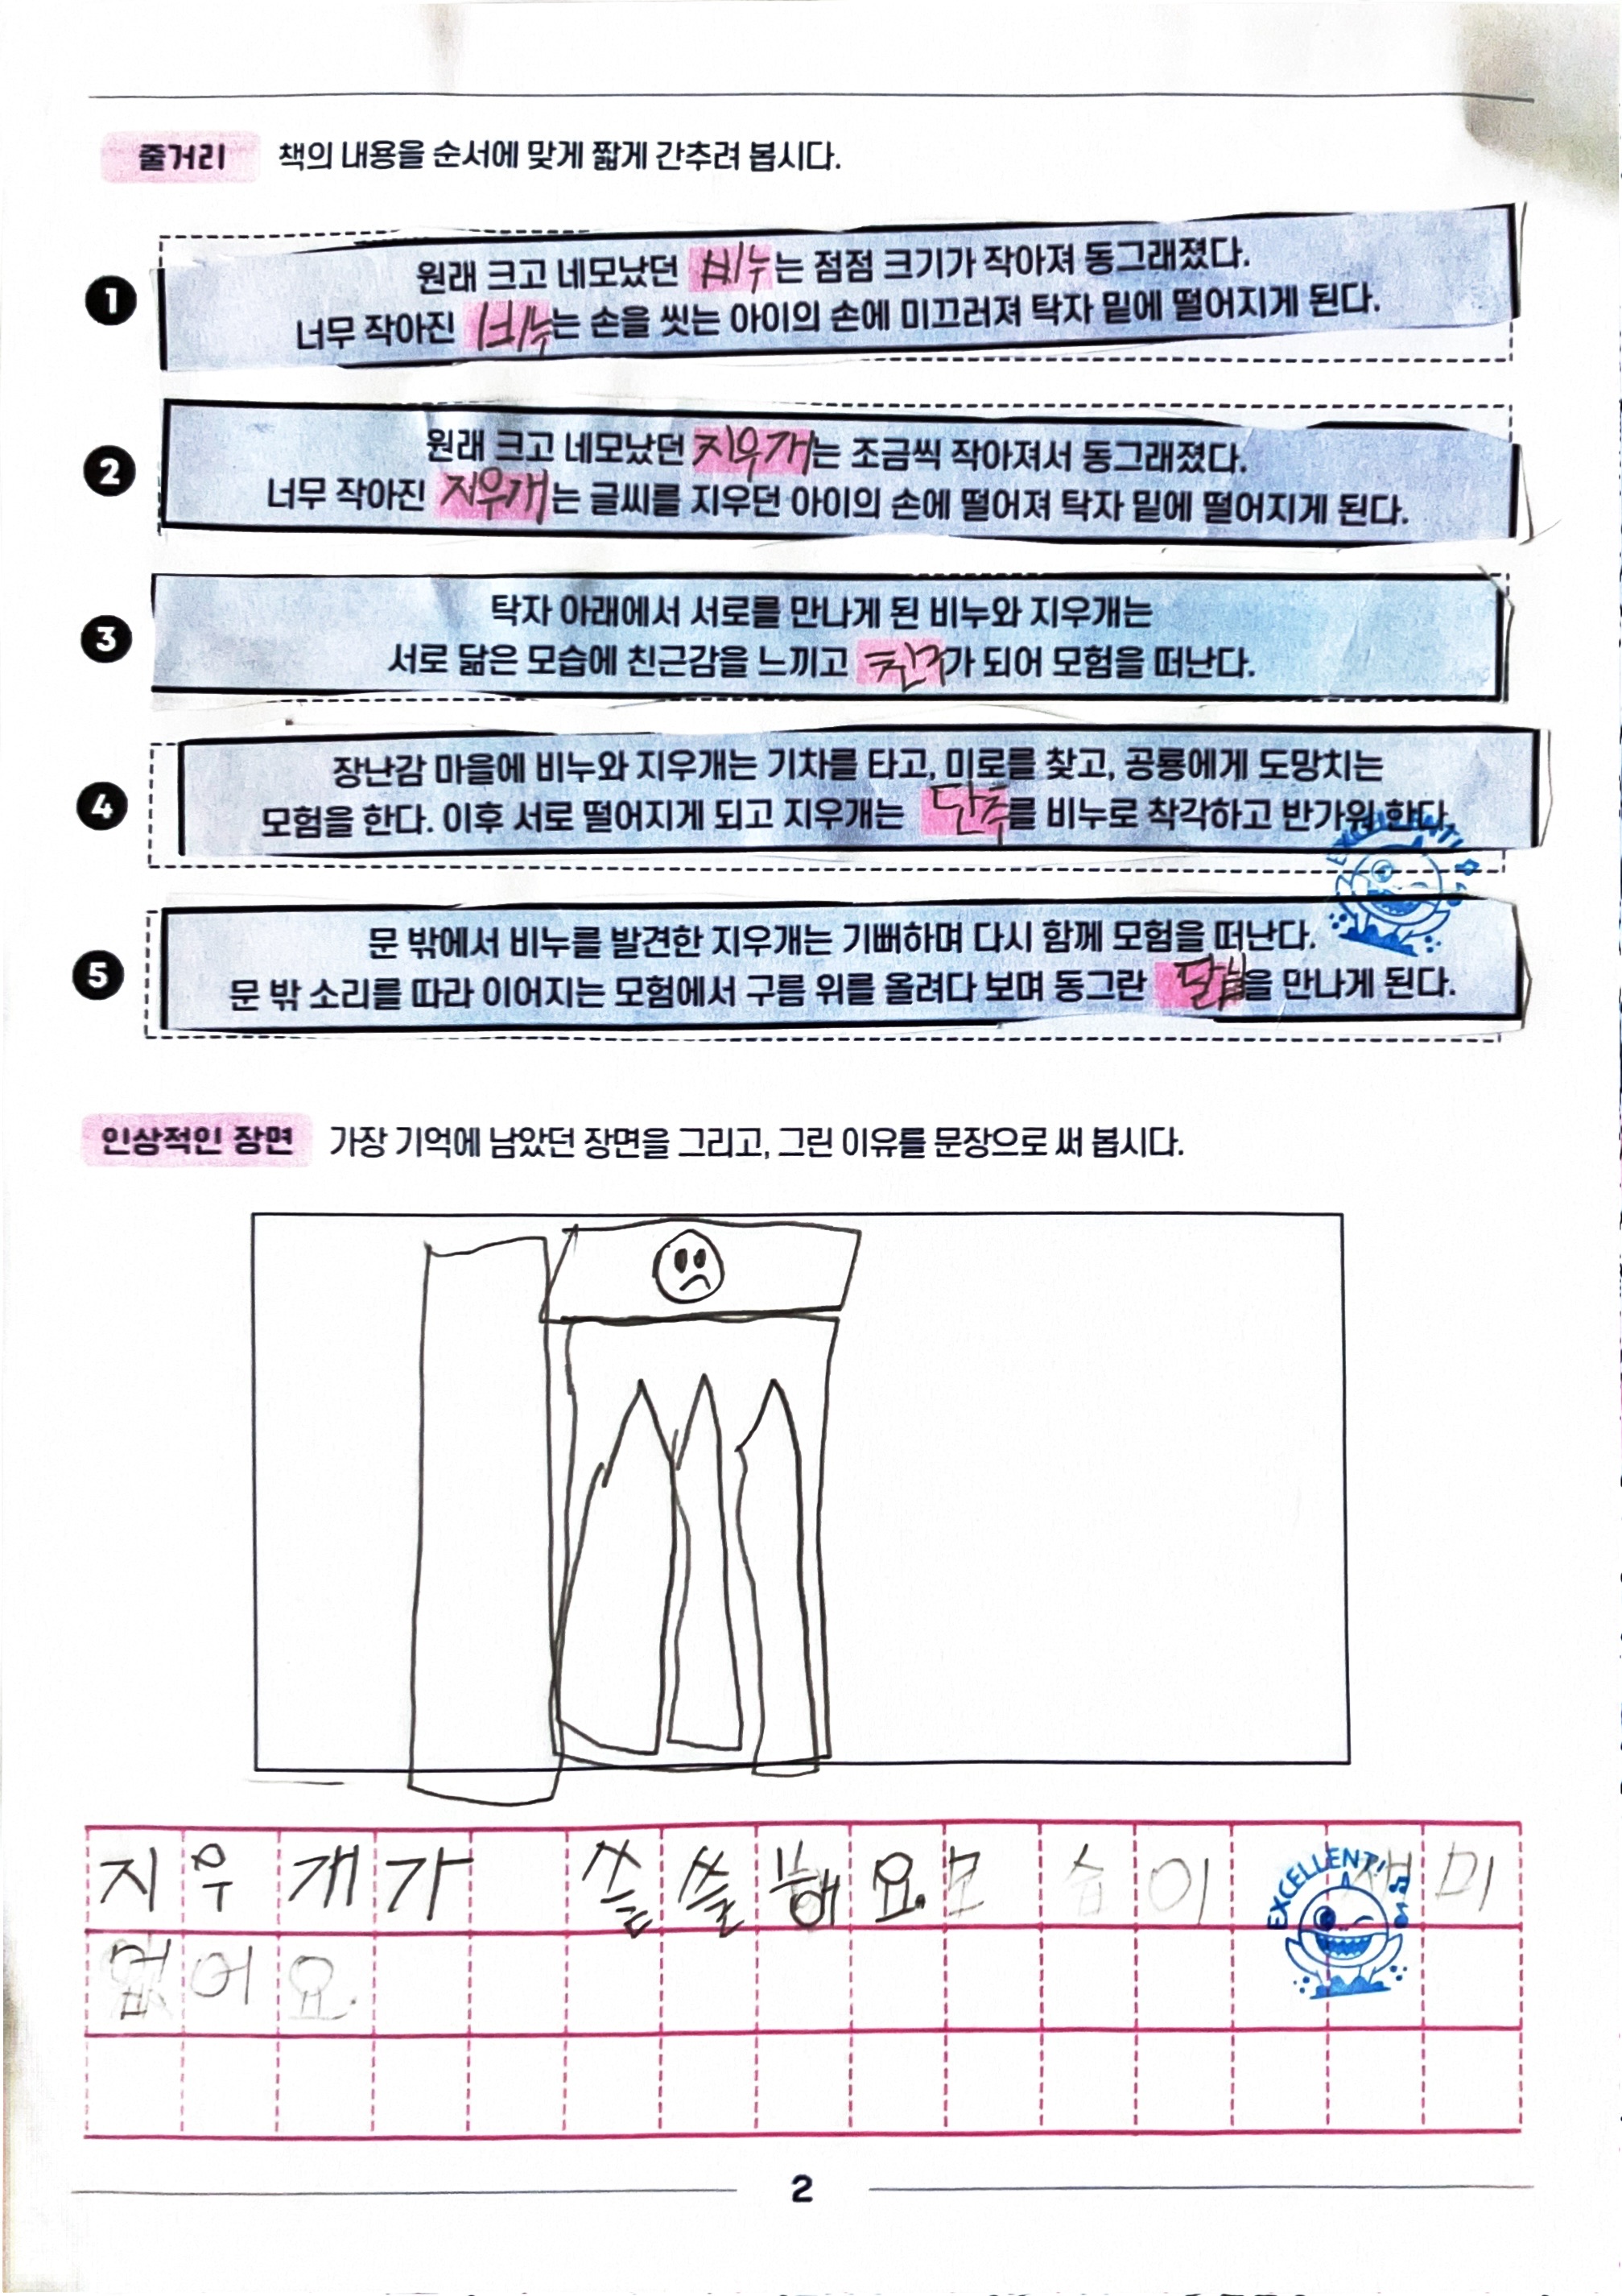 줄거리 책의 내용을 순서에 맞게 짧게 간추려 봅시다.
1 원래 크고 네모났던 비누는 점점 크기가 작아져 동그래졌다.
너무 작아진 비누는 손을 씻는 아이의 손에 미끄러져 탁자 밑에 떨어지게 된다.
2 원래 크고 네모났던 지우개는 조금씩 작아져서 동그래졌다.
너무 작아진 지우개는 글씨를 지우던 아이의 손에 떨어져 탁자 밑에 떨어지게 된다.
3 탁자 아래에서 서로를 만나게 된 비누와 지우개는
서로 닮은 모습에 친근감을 느끼고 친구가 되어 모험을 떠난다.
4 장난감 마을에 비누와 지우개는 기차를 타고, 미로를 찾고, 공룡에게 도망치는
모험을 한다. 이후 서로 떨어지게 되고 지우개는 단추를 비누로 착각하고 반가워 한다.
EXCELLENT!
5 문 밖에서 비누를 발견한 지우개는 기뻐하며 다시 함께 모험을 떠난다.
문 밖 소리를 따라 이어지는 모험에서 구름 위를 올려다 보며 동그란 달님을 만나게 된다.
인상적인 장면 가장 기억에 남았던 장면을 그리고, 그린 이유를 문장으로 써 봅시다.
지우개가 쓸쓸해요. 모습이 재미
EXCELLENT!
없어요.
2